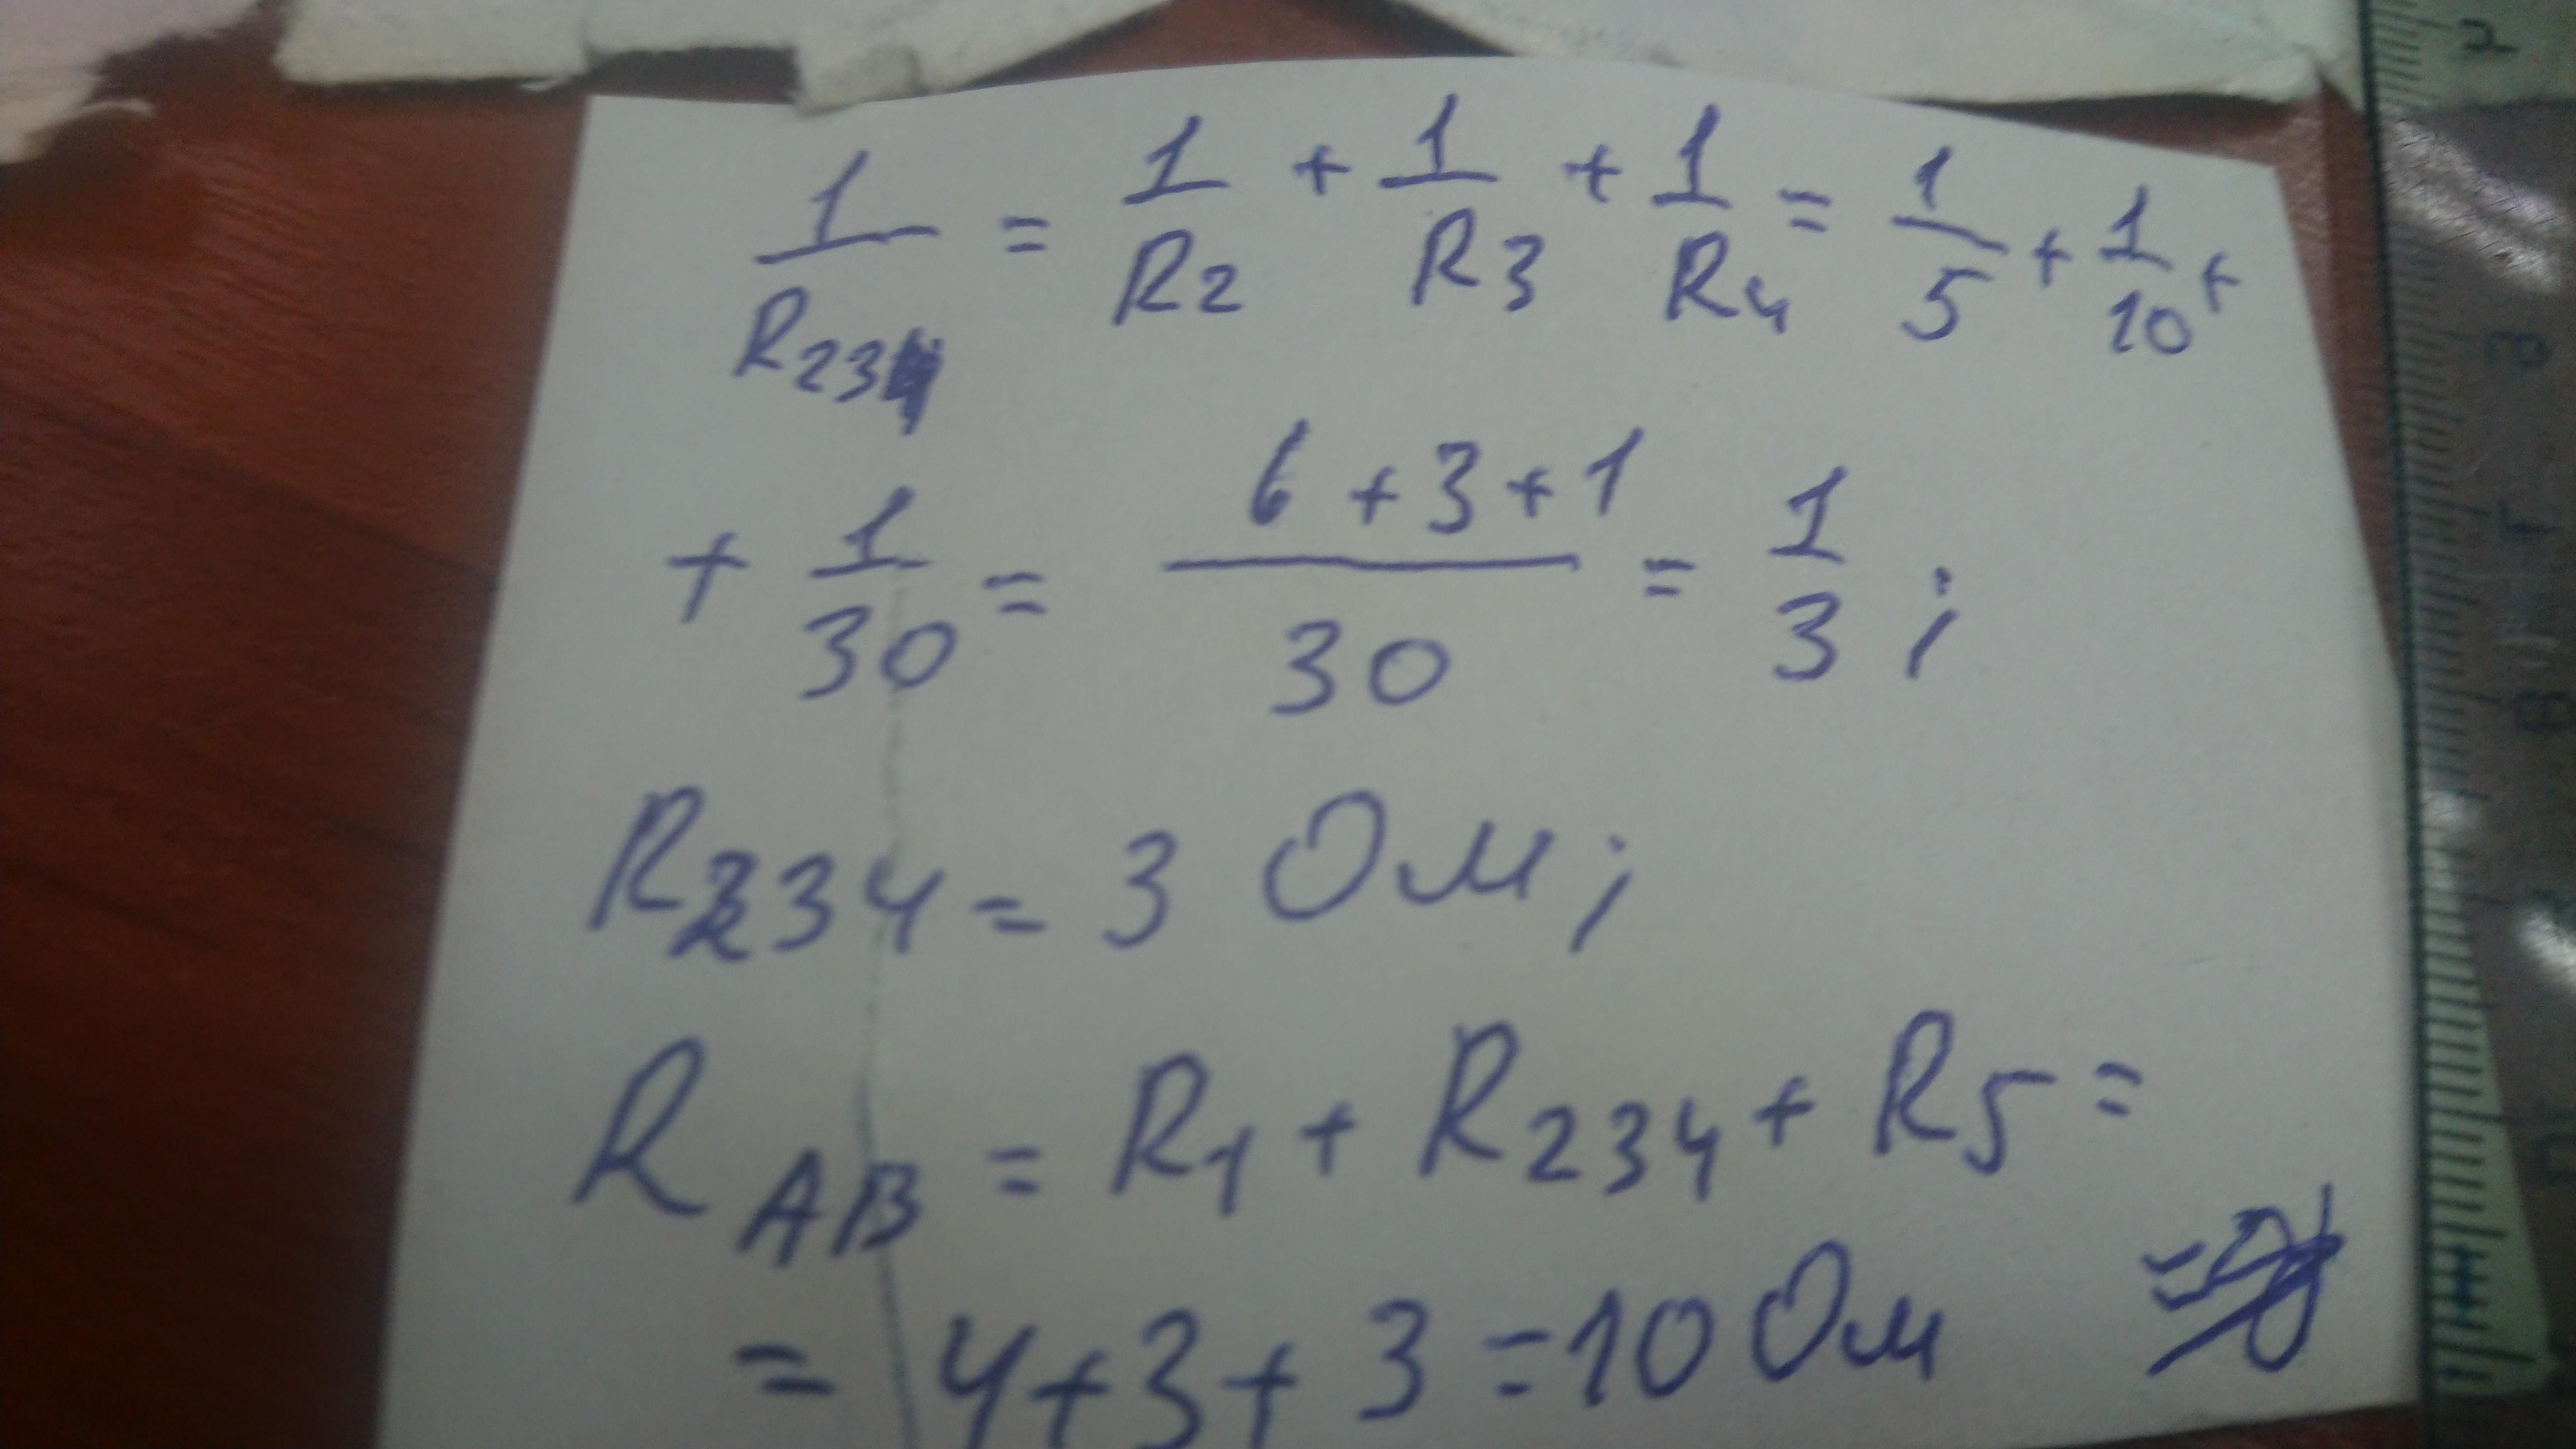 1/R234 = 1/R2 + 1/R3 + 1/R4 = 1/5 + 1/10 +
+ 1/30 = (6 + 3 + 1)/30 = 1/3 ;
R234 = 3 Ом ;
RAB = R1 + R234 + R5 =
= 4 + 3 + 3 = 10 Ом
2
3